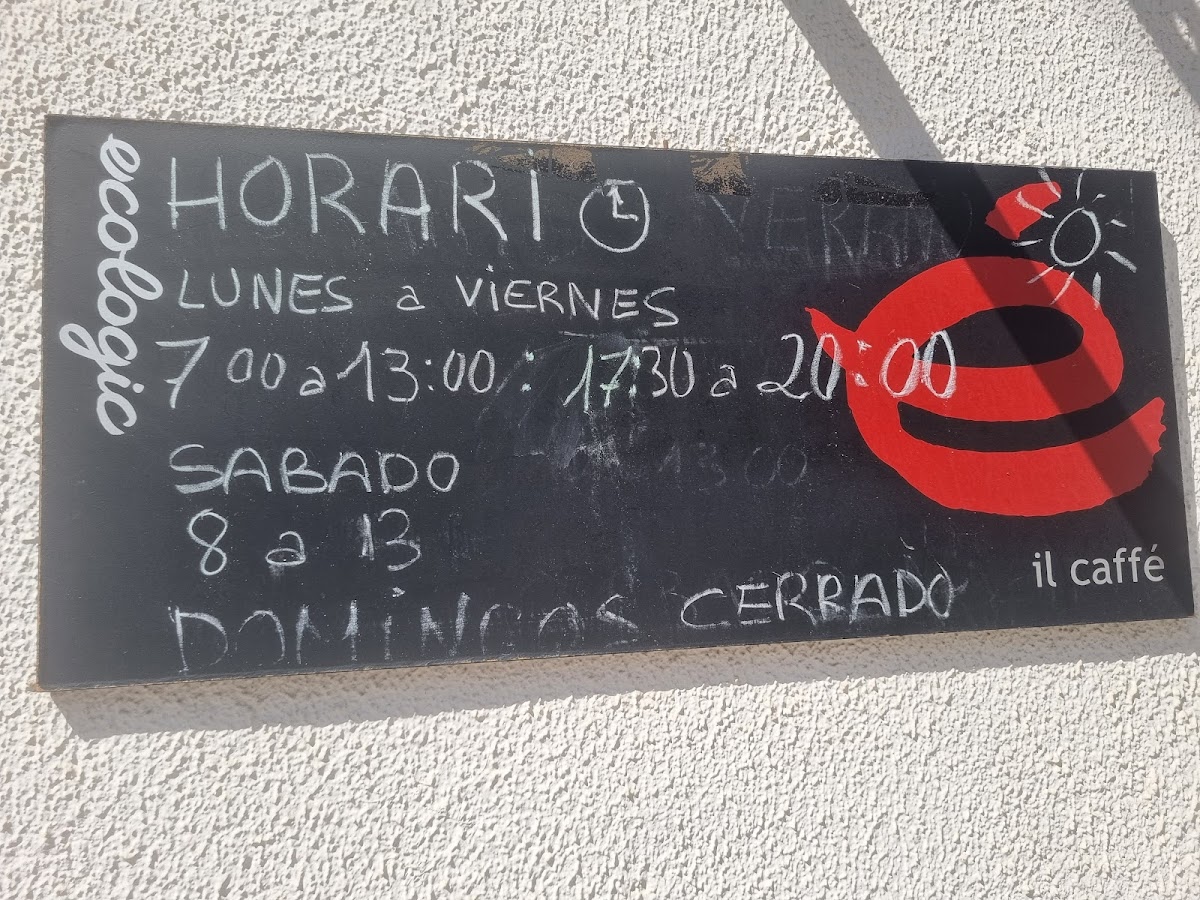 ecologic
HORARI VERANO
LUNES a VIERNES
7 00 a 13:00 : 17:30 a 20:00
SABADO
13 00
8 a 13
DOMINGOS CERRADO
il caffé